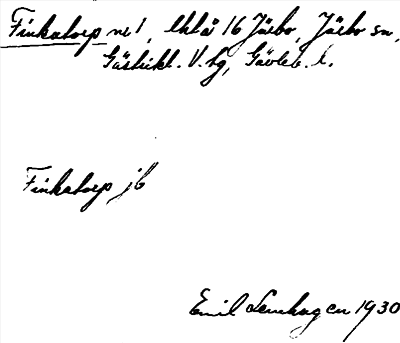 Finkatorp nr 1, lht å 16 Järbo, Järbo sn,
Gästrikl. V. tg, Gävleb. l.
Finkatorp jb
Emil Lenhagen 1930